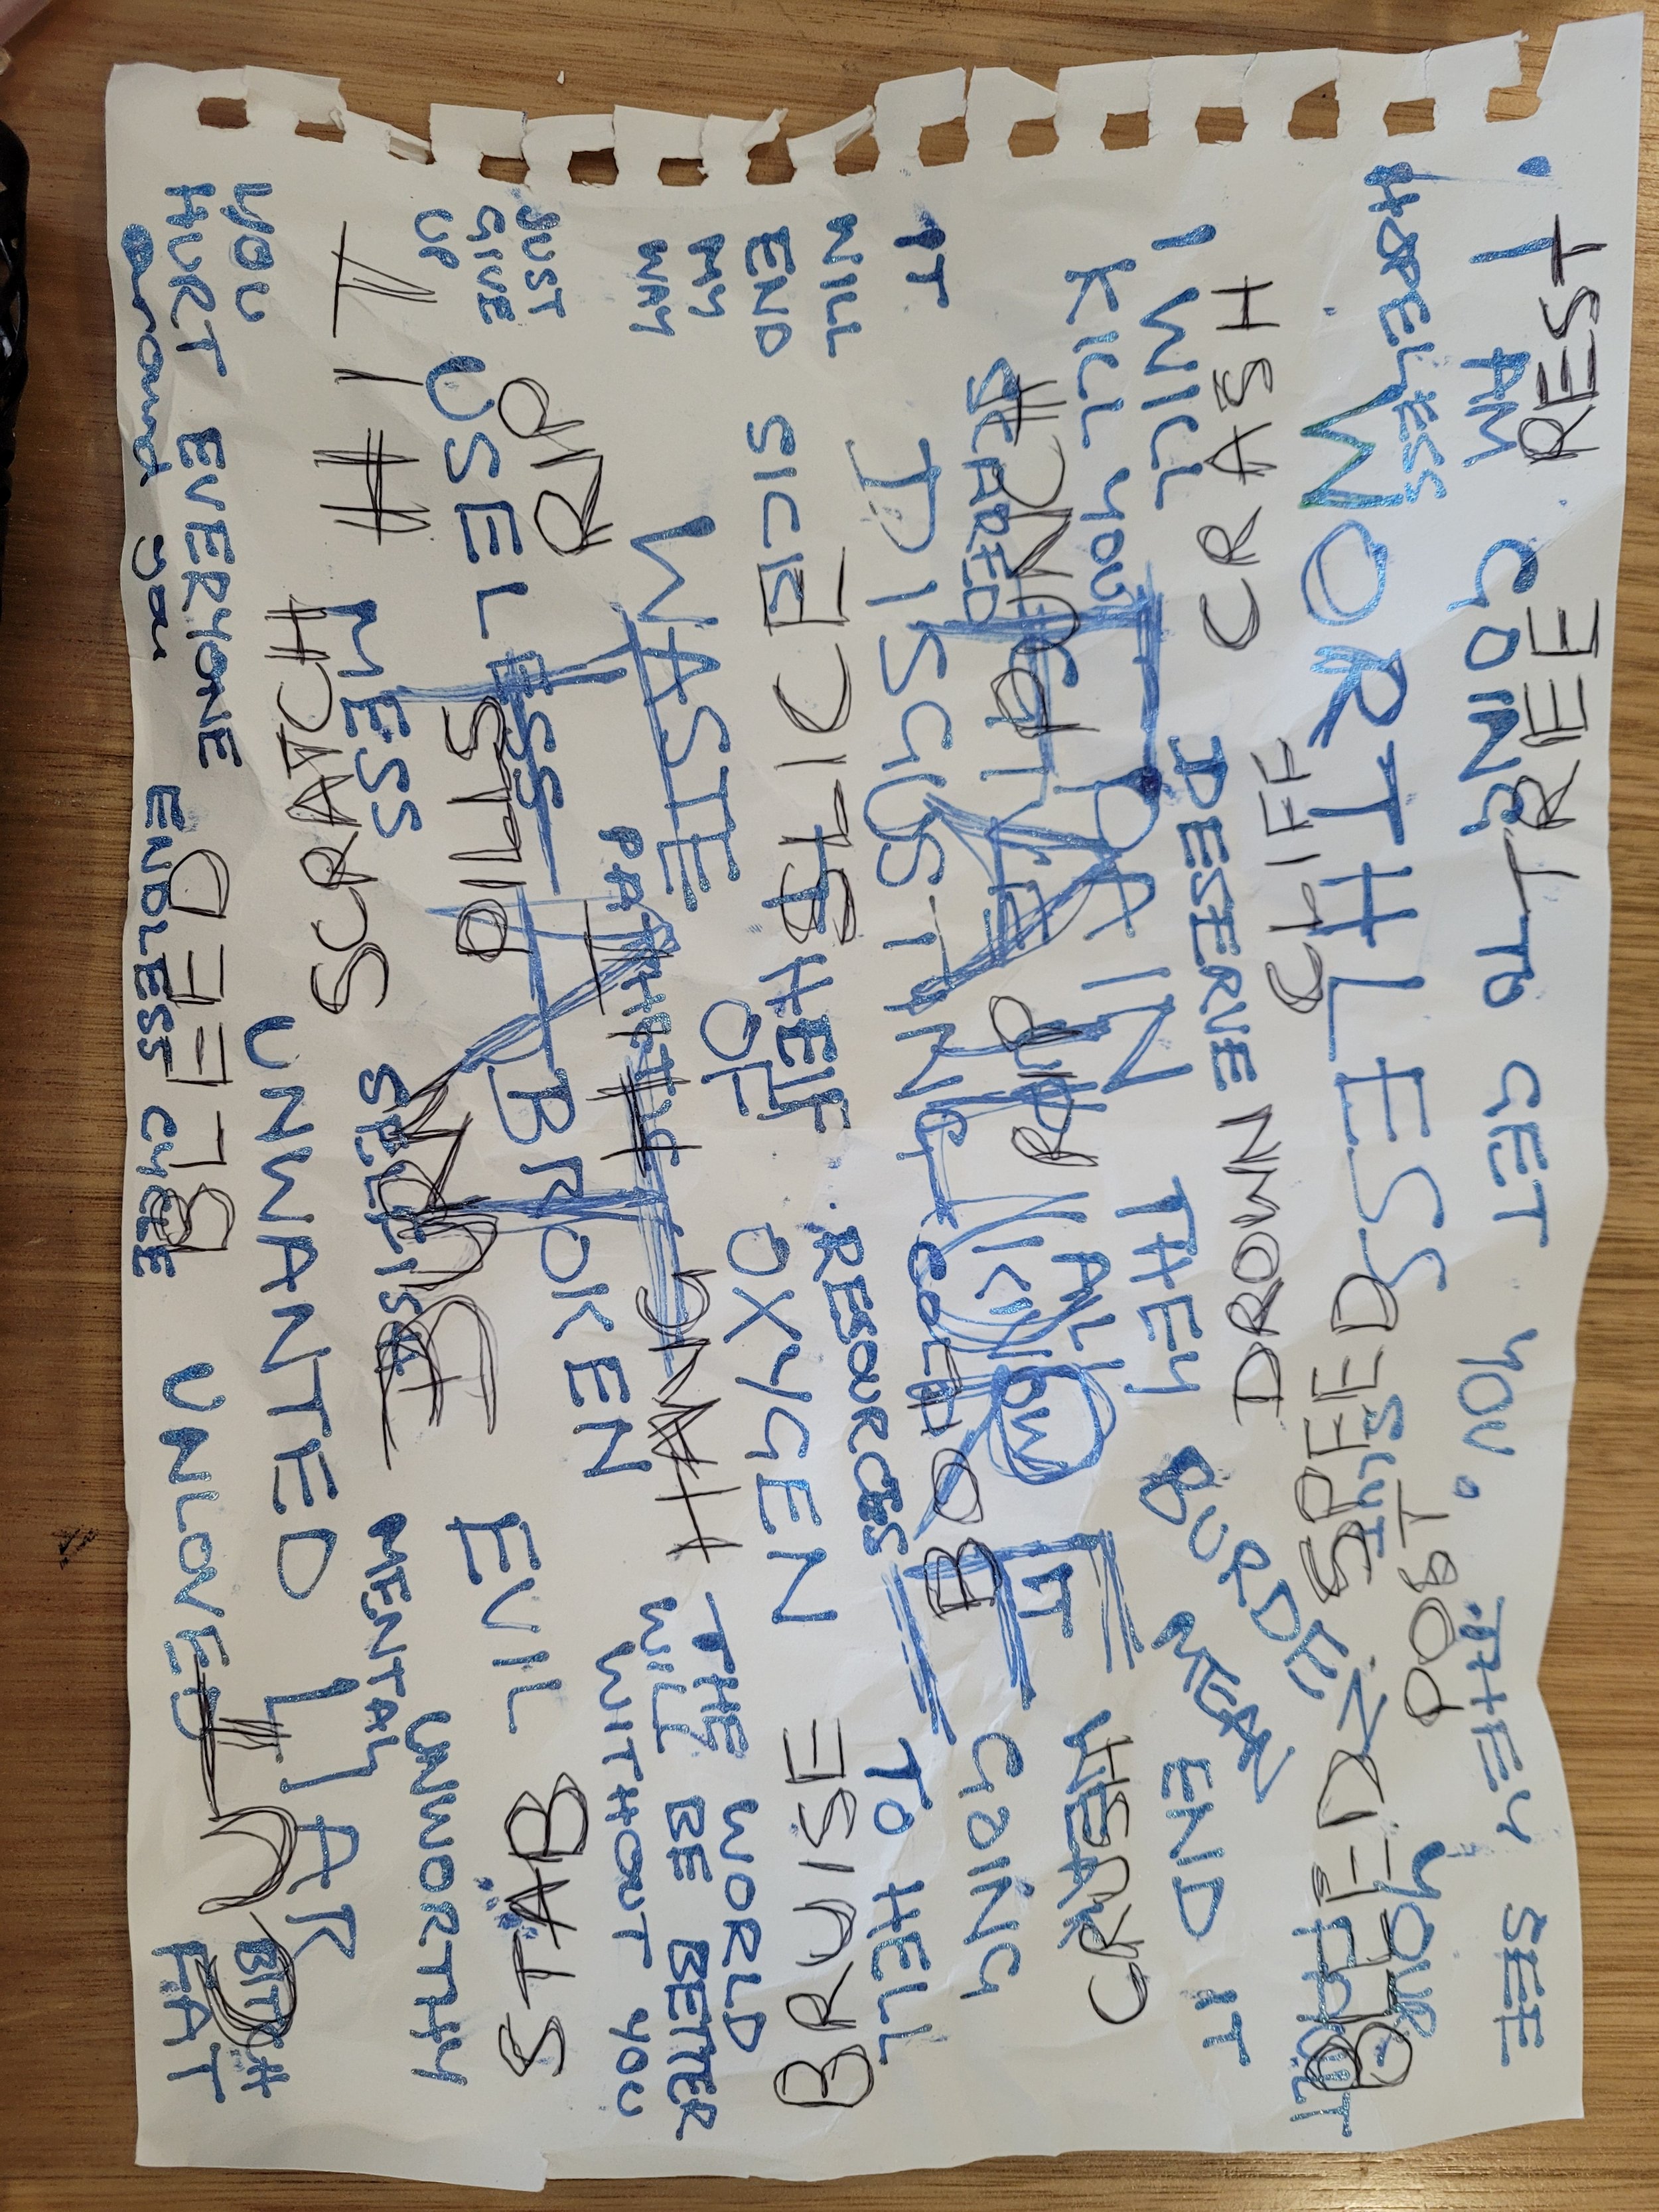 REST TREE
I AM GOING TO GET YOU. THEY SEE
HOPELESS SLUT POST YOUR
WORTHLESS SPEED BLEED FAULT
CRASH CLIFF DROWN BURDEN MEAN
I WILL DESERVE THEY END IT
KILL YOU PAIN ALL KNOW IT CRUSH
SCARED PUNCH GIVE UP RIP GOING
IT DISGUSTING COLD TO HELL
WILL RESOURCES
END SICK SLICE SELF BRUISE
MY WASTE OF OXYGEN THE WORLD
WAY PATHETIC HANG WILL BE BETTER
JUST RIP HIT WITHOUT YOU
GIVE USELESS BROKEN EVIL STAB
UP PILLS
HIT MESS BURN SELFISH MENTAL UNWORTHY
SCRATCH UNWANTED LIAR
YOU BITCH
HURT EVERYONE BLEED UNLOVED CUT FAT
around you ENDLESS CYCLE